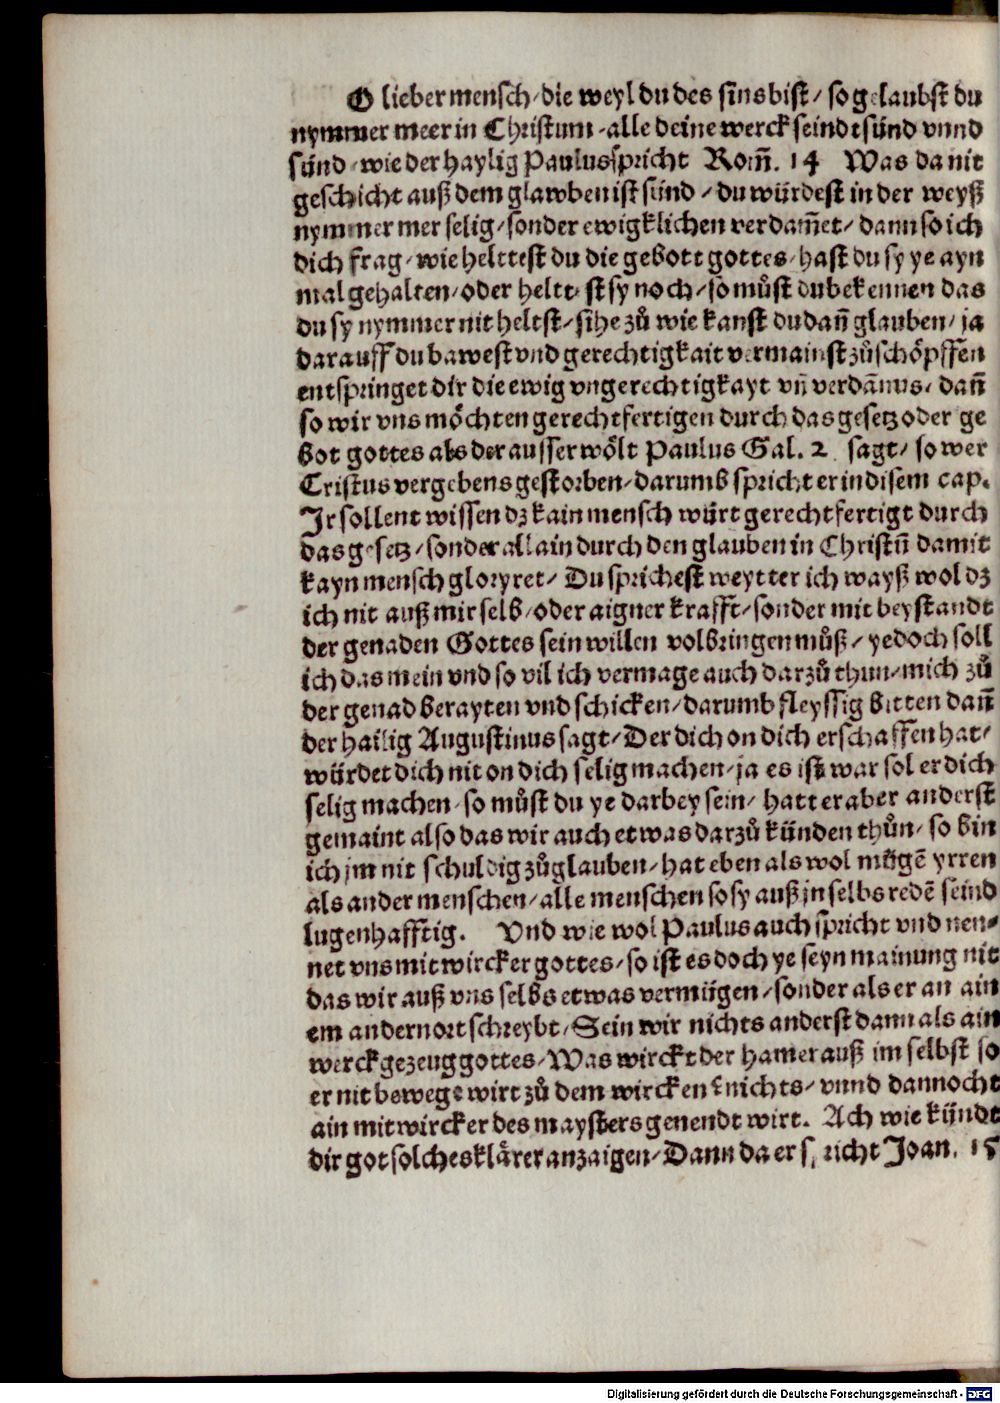 O lieber mensch / die weyl du des sins bist / so gelaubst du
nymmer meer in Christum / alle deine werck seindt sünd vnnd
sünd / wie der haylig Paulus spricht Rom̄. 14 Was da nit
geschicht auß dem glawben ist sünd / du würdest in der weyß
nymmer mer selig / sonder ewigklichen verdam̄et / dann so ich
dich frag / wie helttest du die gebott gottes / hast du sy ye ayn
mal gehalten / oder heltest sy noch / so můst du bekennen das
du sy nymmer nit heltst / sihe zů wie kanst du dañ glauben / ja
darauff du bawest vnd gerechtigkait vermainst zůschöpffen
entspringet dir die ewig vngerechtigkayt vñ verdãnus / dañ
so wir vns möchten gerechtfertigen durch das gesetz oder ge
bot gottes als der ausserwölt Paulus Gal. 2 sagt / so wer
Cristus vergebens gestorben / darumb spricht er in disem cap.
Ir sollent wissen dz kain mensch würt gerechtfertigt durch
das gesetz / sonder allain durch den glauben in Christũ damit
kayn mensch gloryret / Du sprichest weytter ich wayß wol dz
ich nit auß mir selb / oder aigner krafft / sonder mit beystandt
der genaden Gottes sein willen volbringen můß / yedoch soll
ich das mein vnd so vil ich vermage auch darzů thun / mich zů
der genad berayten vnd schicken / darumb fleyssig bitten dañ
der hailig Augustinus sagt / Der dich on dich erschaffen hat /
würdet dich nit on dich selig machen / ja es ist war sol er dich
selig machen / so můst du ye darbey sein / hatt er aber anderst
gemaint also das wir auch etwas darzů künden thůn / so bin
ich jm nit schuldig zůglauben / hat eben als wol mügẽ yrren
als ander menschen / alle menschen so sy auß jn selbs redẽ seind
lugenhafftig. Vnd wie wol Paulus auch spricht vnd nen-
net vns mitwircker gottes / so ist es doch ye seyn mainung nit
das wir auß vns selbs etwas vermügen / sonder als er an ain
em andern ort schreybt / Sein wir nichts anderst dann als ain
werckgezeug gottes / Was wirckt der hamer auß im selbst so
er nit bewegt wirt zů dem wircken? nichts / vnnd dannocht
ain mitwircker des maysters genendt wirt. Ach wie kündt
dir got solches klärer anzaigen / Dann da er spricht Joan. 15
Digitalisierung gefördert durch die Deutsche Forschungsgemeinschaft - DFG